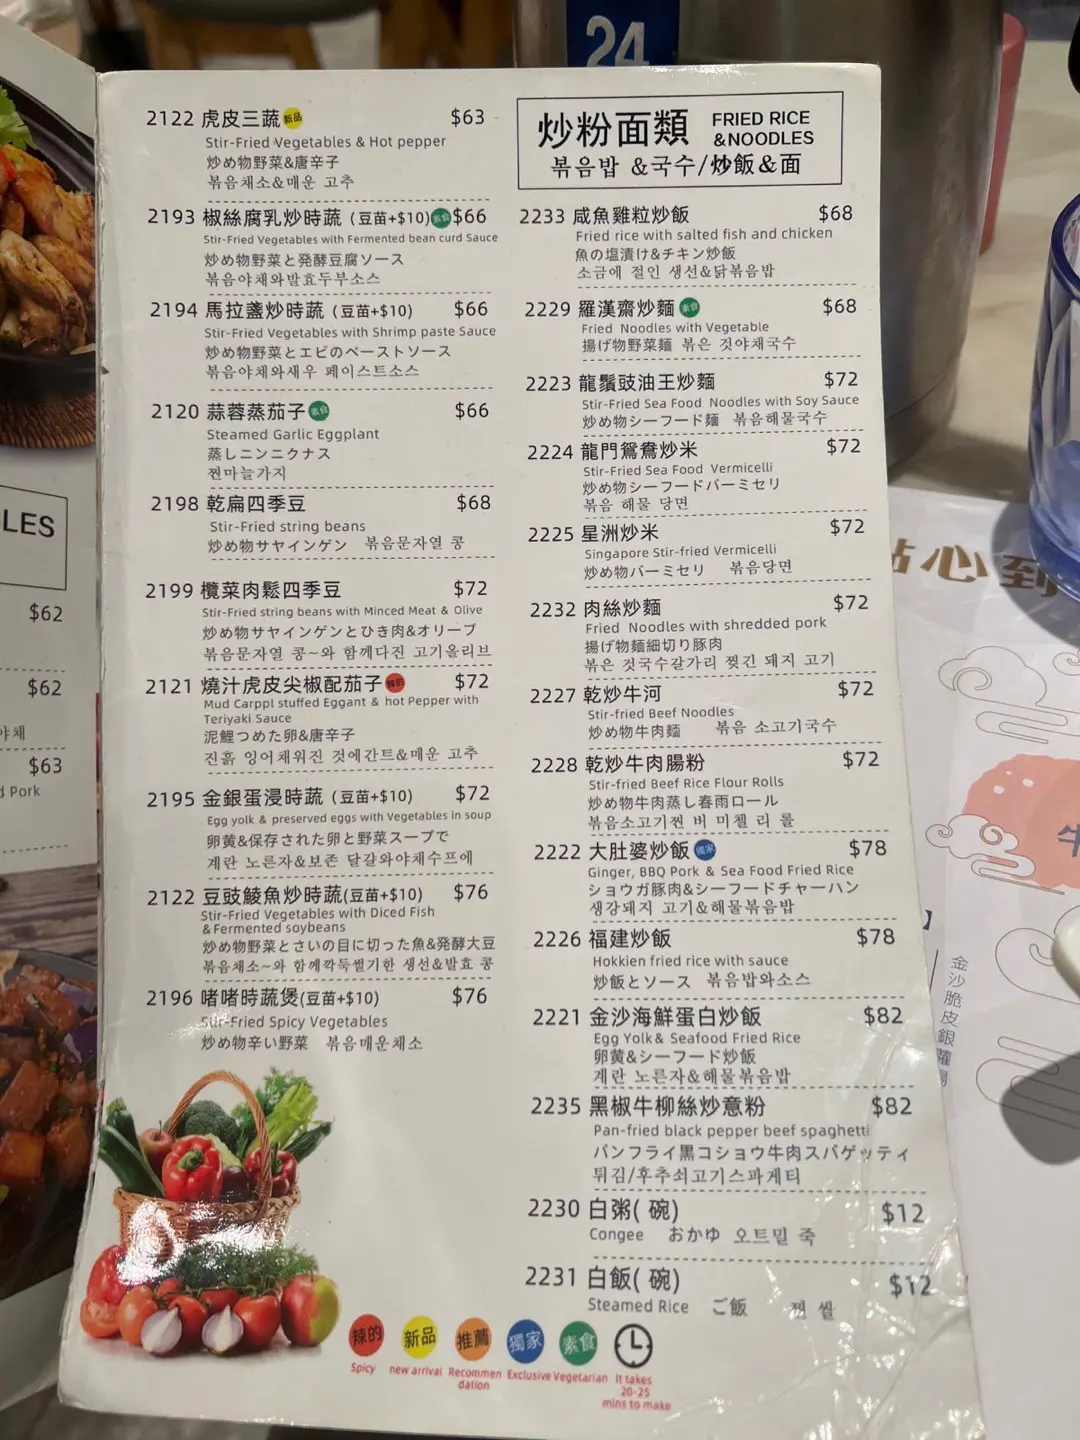 24
2122 虎皮三蔬 新品 $63
Stir-Fried Vegetables & Hot pepper
炒め物野菜&唐辛子
볶음채소&매운 고추
2193 椒絲腐乳炒時蔬 (豆苗+$10) 素食 $66
Stir-Fried Vegetables with Fermented bean curd Sauce
炒め物野菜と発酵豆腐ソース
볶음야채와발효두부소스
2194 馬拉盞炒時蔬 (豆苗+$10) $66
Stir-Fried Vegetables with Shrimp paste Sauce
炒め物野菜とエビのペーストソース
볶음야채와새우 페이스트소스
2120 蒜蓉蒸茄子 素食 $66
Steamed Garlic Eggplant
蒸しニンニクナス
찐마늘가지
2198 乾扁四季豆 $68
Stir-Fried string beans
炒め物サヤインゲン 볶음문자열 콩
2199 欖菜肉鬆四季豆 $72
Stir-Fried string beans with Minced Meat & Olive
炒め物サヤインゲンとひき肉&オリーブ
볶음문자열 콩~와 함께다진 고기올리브
2121 燒汁虎皮尖椒配茄子 辣的 $72
Mud Carppl stuffed Eggant & hot Pepper with
Teriyaki Sauce
泥鯉つめた卵&唐辛子
진흙 잉어채워진 것에간트&매운 고추
2195 金銀蛋浸時蔬 (豆苗+$10) $72
Egg yolk & preserved eggs with Vegetables in soup
卵黄&保存された卵と野菜スープで
계란 노른자&보존 달걀와야채수프에
2122 豆豉鯪魚炒時蔬(豆苗+$10) $76
Stir-Fried Vegetables with Diced Fish
&Fermented soybeans
炒め物野菜とさいの目に切った魚&発酵大豆
볶음채소~와 함께깍둑썰기한 생선&발효 콩
2196 啫啫時蔬煲(豆苗+$10) $76
Stir-Fried Spicy Vegetables
炒め物辛い野菜 볶음매운채소
炒粉面類 FRIED RICE
&NOODLES
볶음밥 &국수/炒飯&面
2233 咸魚雞粒炒飯 $68
Fried rice with salted fish and chicken
魚の塩漬け&チキン炒飯
소금에 절인 생선&닭볶음밥
2229 羅漢齋炒麵 素食 $68
Fried Noodles with Vegetable
揚げ物野菜麺 볶은 것야채국수
2223 龍鬚豉油王炒麵 $72
Stir-Fried Sea Food Noodles with Soy Sauce
炒め物シーフード麺 볶음해물국수
2224 龍門鴛鴦炒米 $72
Stir-Fried Sea Food Vermicelli
炒め物シーフードバーミセリ
볶음 해물 당면
2225 星洲炒米 $72
Singapore Stir-fried Vermicelli
炒め物バーミセリ 볶음당면
2232 肉絲炒麵 $72
Fried Noodles with shredded pork
揚げ物麺細切り豚肉
볶은 것국수갈가리 찢긴 돼지 고기
2227 乾炒牛河 $72
Stir-fried Beef Noodles
炒め物牛肉麺 볶음 소고기국수
2228 乾炒牛肉腸粉 $72
Stir-fried Beef Rice Flour Rolls
炒め物牛肉蒸し春雨ロール
볶음소고기찐 버 미첼 리 롤
2222 大肚婆炒飯 獨家 $78
Ginger, BBQ Pork & Sea Food Fried Rice
ショウガ豚肉&シーフードチャーハン
생강돼지 고기&해물볶음밥
2226 福建炒飯 $78
Hokkien fried rice with sauce
炒飯とソース 볶음밥와소스
2221 金沙海鮮蛋白炒飯 $82
Egg Yolk& Seafood Fried Rice
卵黄&シーフード炒飯
계란 노른자&해물볶음밥
2235 黑椒牛柳絲炒意粉 $82
Pan-fried black pepper beef spaghetti
パンフライ黒コショウ牛肉スパゲッティ
튀김/후추쇠고기스파게티
2230 白粥( 碗) $12
Congee おかゆ 오트밀 죽
2231 白飯( 碗) $12
Steamed Rice ご飯 찐 쌀
辣的 新品 推薦 獨家 素食
Spicy new arrival Recommen
dation Exclusive Vegetarian It takes
20-25
mins to make
LES
$62
$62
야채
$63
d Pork
心到
牛
金沙脆皮銀蘿